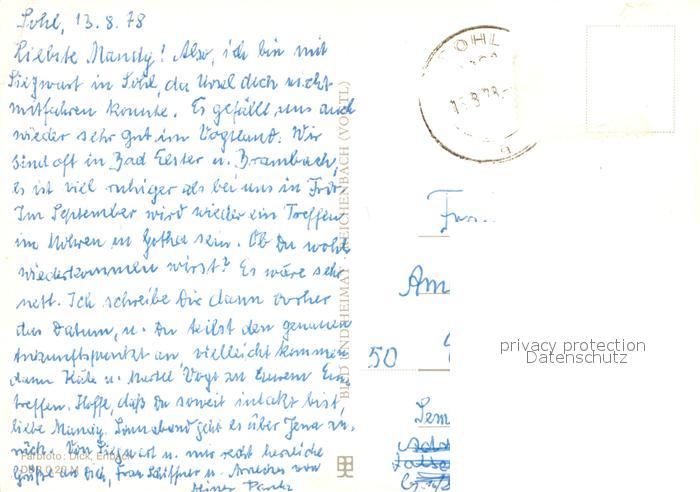 Sohl, 13.8.78
Liebste Mandy! Also, ich bin mit
Siegwart in Sohl, da Ursel doch nicht
mitfahren konnte. Es gefällt uns auch
wieder sehr gut im Vogtland. Wir
sind oft in Bad Elster u. Brambach,
es ist viel ruhiger als bei uns in
Im September wird wieder ein Treffen
im Mohren in Gotha sein. Ob Du wohl
wiederkommen wirst? Es wäre sehr
nett. Ich schreibe Dir dann vorher
das Datum, u. Du teilst den genauen
Ankunftspunkt an, vielleicht kommen
dann Käte u. Vogt zu Eurem Ein-
treffen. Hoffe, daß Du soweit intakt bist,
liebe Mandy. Sonnabend geht es über Jena zu-
rück. Von Siegwart u. mir recht herzliche
Grüße an Dich, Frau Schiffner u. von
Deiner
BILD UND HEIMAT REICHENBACH (VOGTL)
Farbfoto: Dick, Erlbach
SOHL
13.8.78
Am
50
privacy protection
Datenschutz